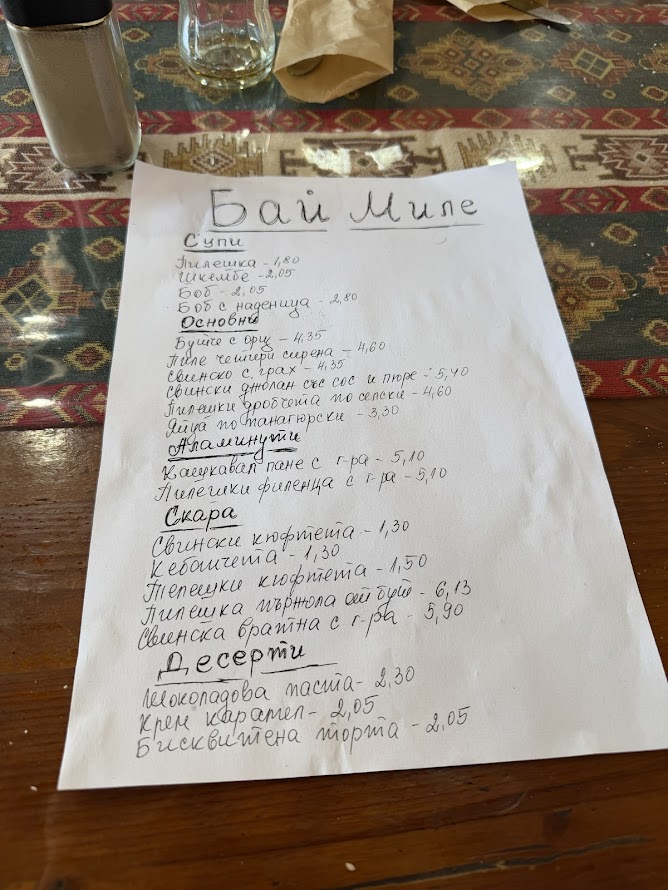 Бай Миле
Супи
Пилешка - 1,80
Шкембе - 2,05
Боб - 2,05
Боб с наденица - 2,80
Основни
Бутче с ориз - 4,35
Пиле четири сирена - 4,60
Свинско с грах - 4,35
Свински джолан със сос и пюре - 5,40
Пилешки дробчета по селски - 4,60
Яйца по панагюрски - 3,30
Аламинути
Кашкавал пане с г-ра - 5,10
Пилешки филенца с г-ра - 5,10
Скара
Свински кюфтета - 1,30
Кебапчета - 1,30
Телешки кюфтета - 1,50
Пилешка пържола от бут - 6,13
Свинска вратна с г-ра - 5,90
Десерти
Шоколадова паста - 2,30
Крем карамел - 2,05
Бисквитена торта - 2,05